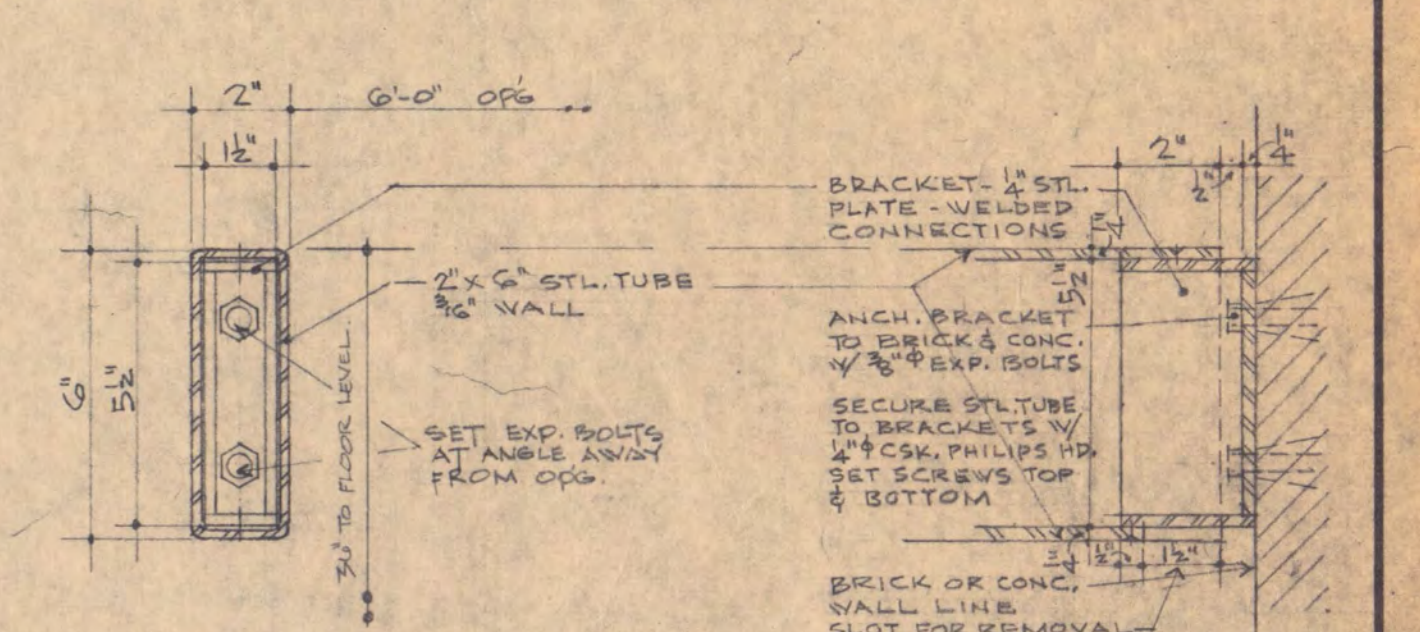 2"
6'-0" OPG
1½"
6"
5½"
2" X 6" STL. TUBE
3/16" WALL
36" TO FLOOR LEVEL.
SET EXP. BOLTS
AT ANGLE AWAY
FROM OPG.
BRACKET - ¼" STL.
PLATE - WELDED
CONNECTIONS
ANCH. BRACKET
TO BRICK & CONC.
W/ 3/8"ϕ EXP. BOLTS
SECURE STL. TUBE
TO BRACKETS W/
¼"ϕ CSK. PHILIPS HD.
SET SCREWS TOP
& BOTTOM
BRICK OR CONC.
WALL LINE
SLOT FOR REMOVAL
2"
½"
¼"
¼"
5½"
¼
½"
1½"